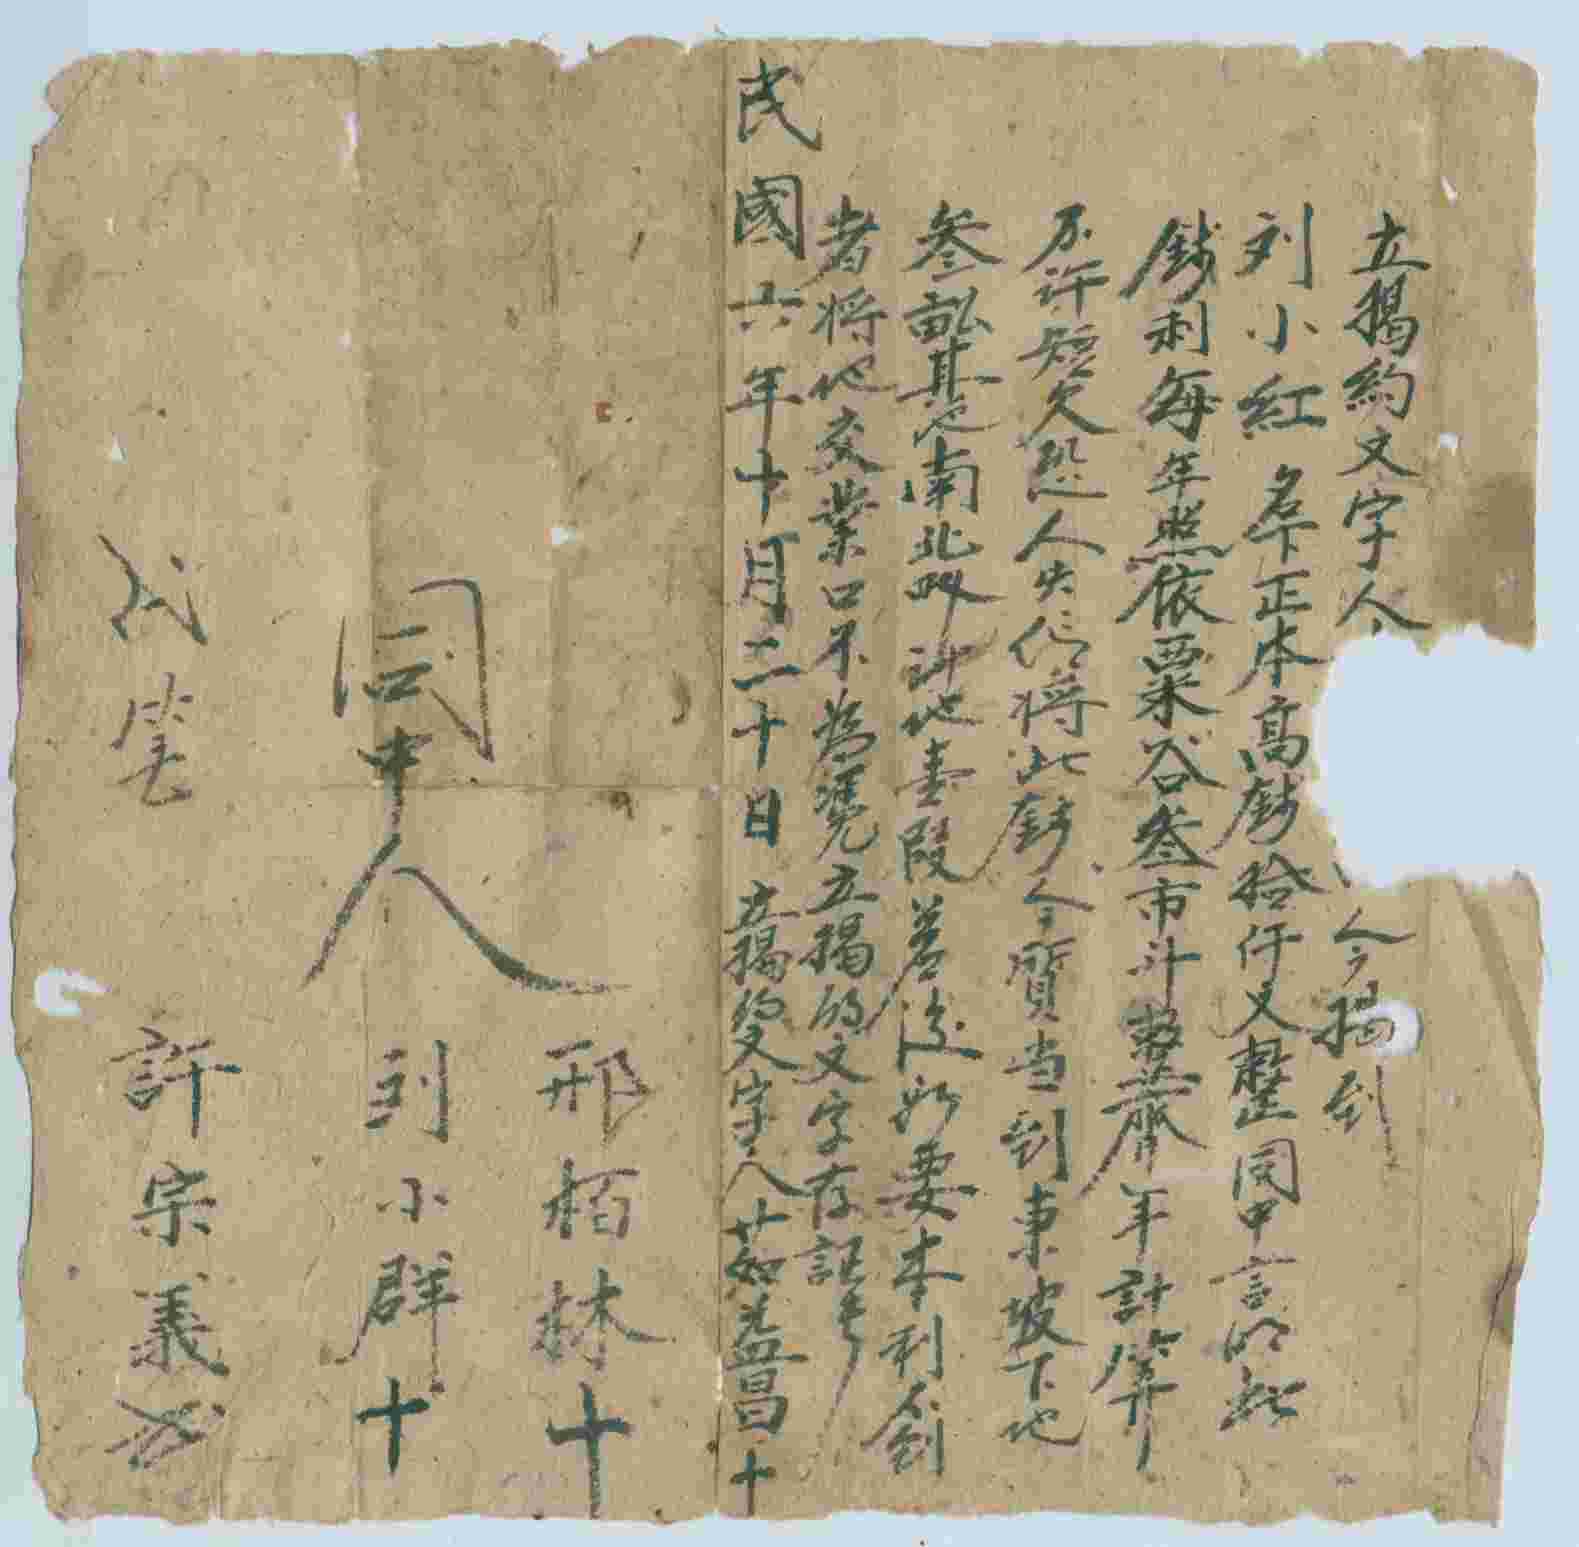 立揭約文字人今揭到
刘小紅名下正本高錢拾仟文整同中言明起
錢利每年照依粟谷叁市斗整蓋齊年計算
不許短欠恐人失信將此錢今質当到東坡下地
叁畝其地南北畛計地壹段若後如要本利不到
者將地交業口不為憑立揭約文字存証
民國六年十月二十日 立揭約文字人茹益昌十
同中人
邢栢林十
刘小群十
代筆 許宗義